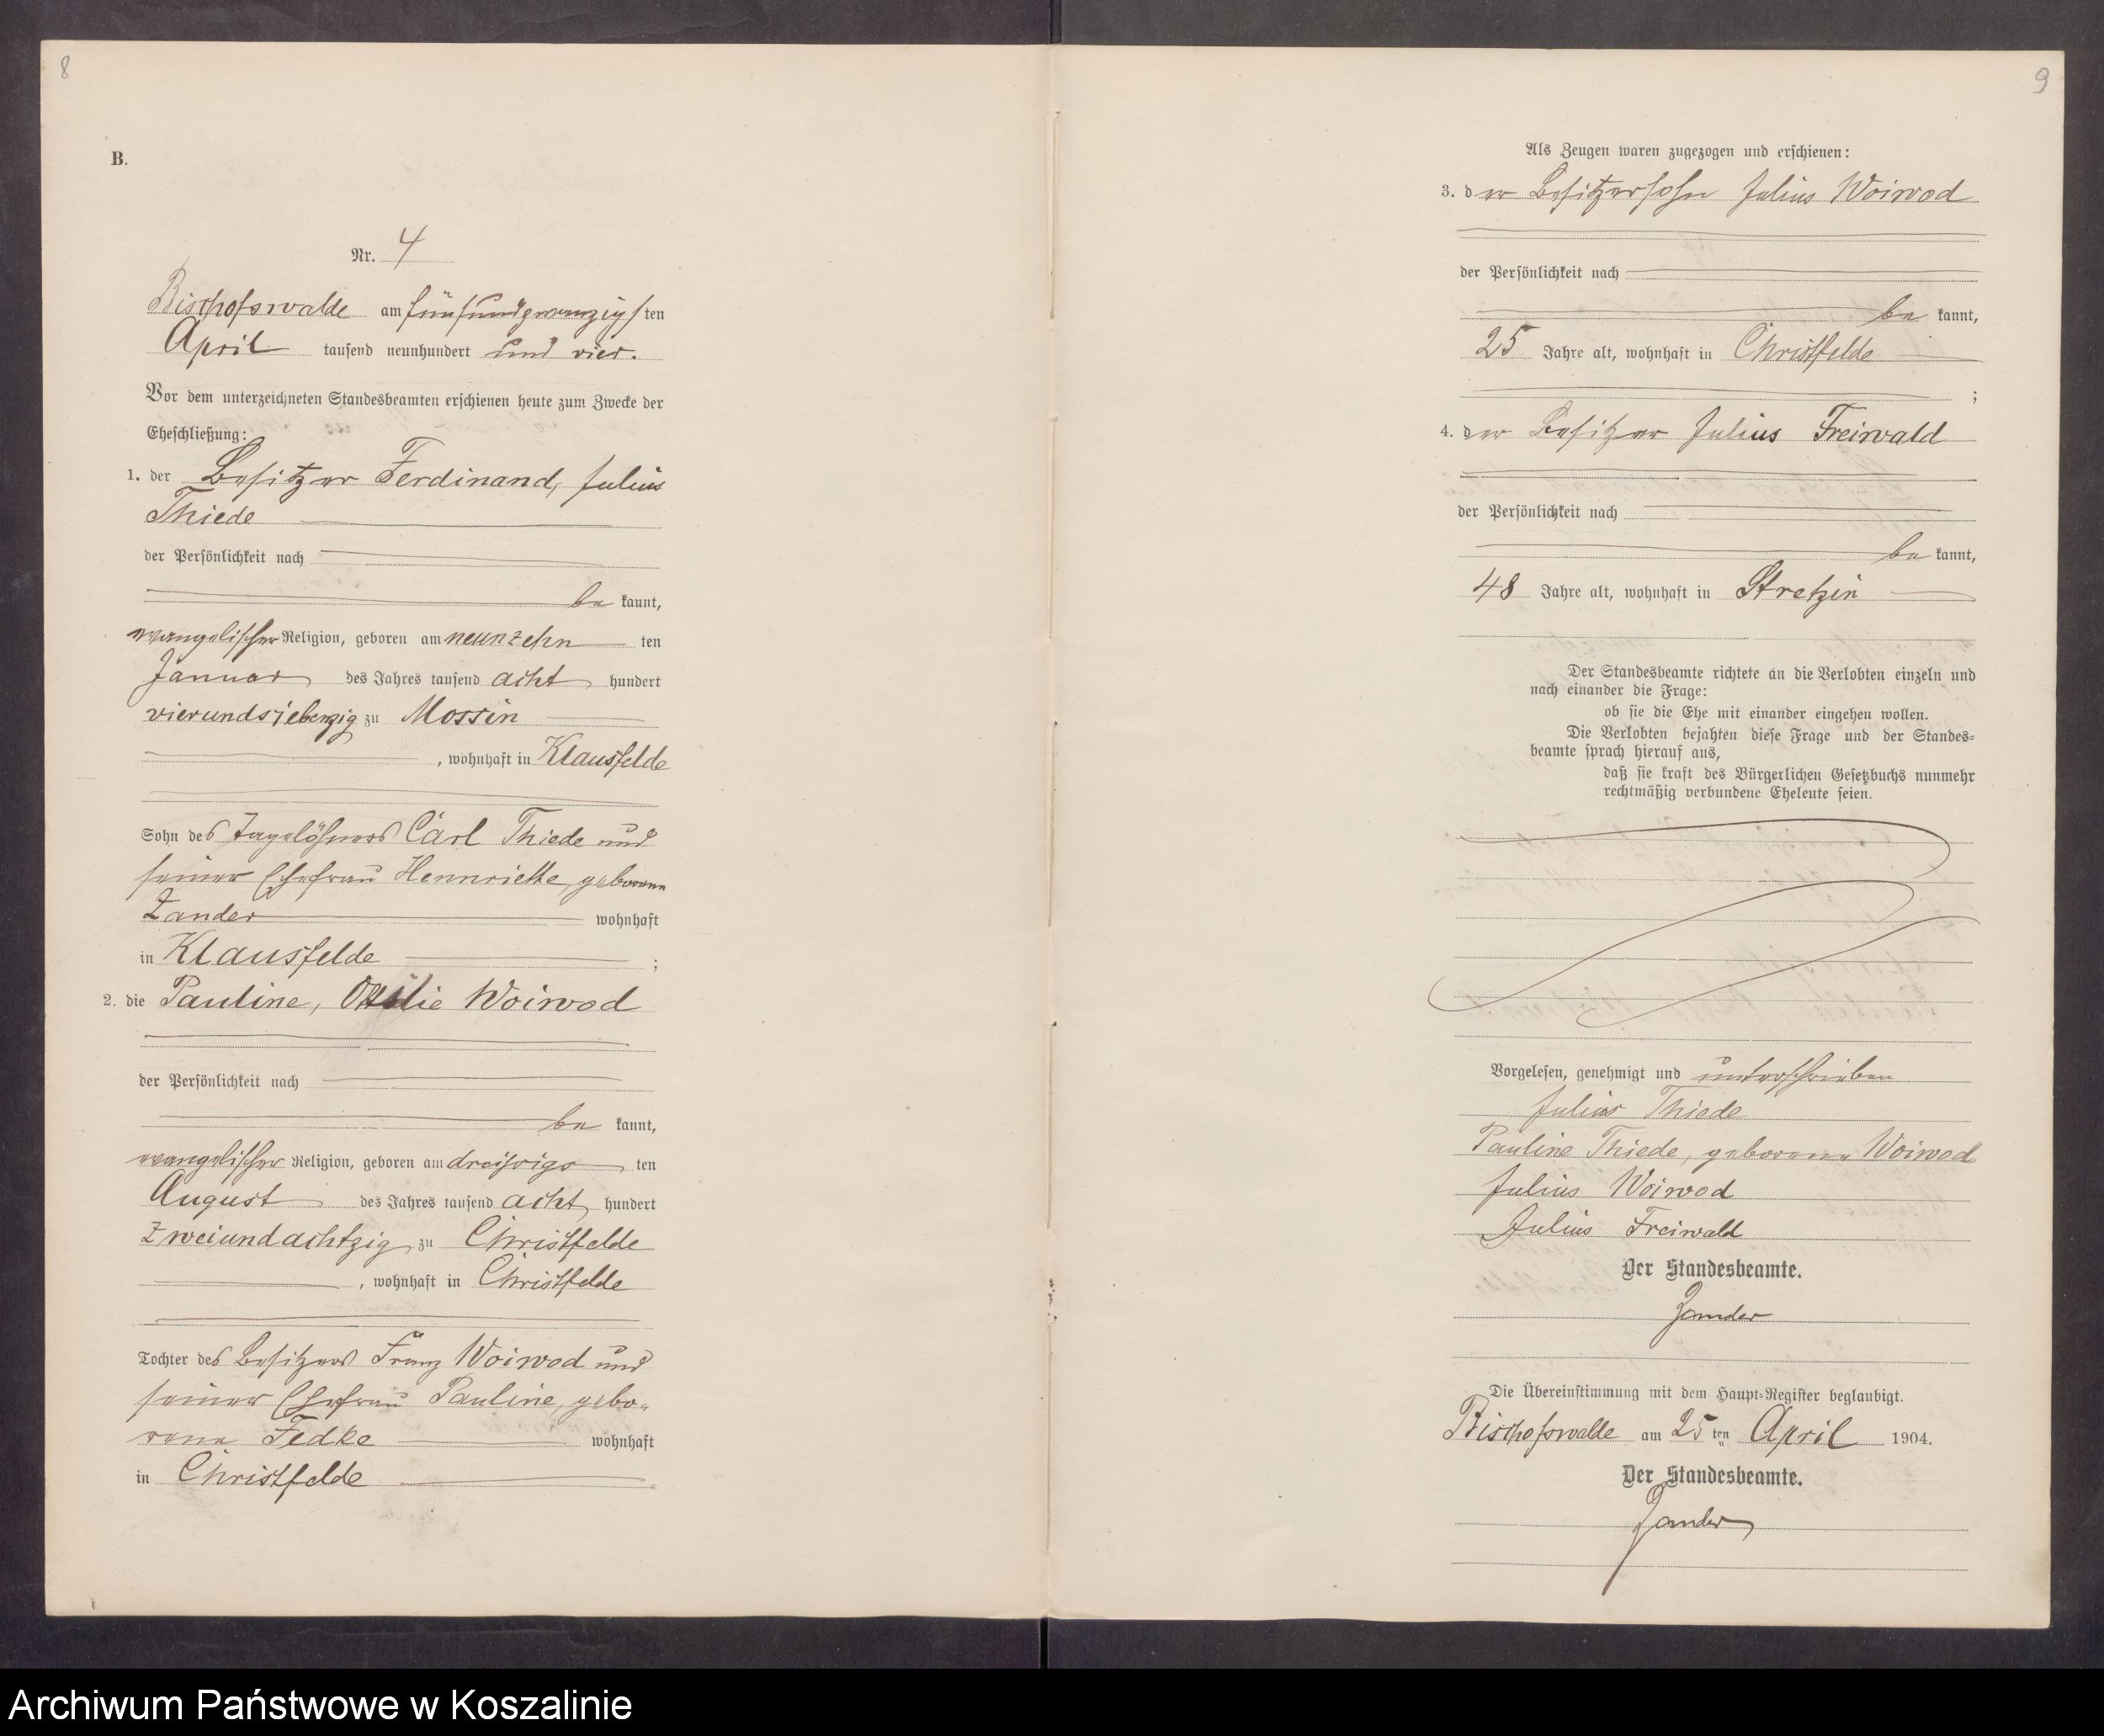 8
B.
Nr. 4
Bischofswalde am fünfundzwanzigsten
April tausend neunhundert und vier.
Vor dem unterzeichneten Standesbeamten erschienen heute zum Zwecke der
Eheschließung:
1. der Besitzer Ferdinand, Julius
Thiede
der Persönlichkeit nach
be kannt,
evangelischer Religion, geboren am neunzehn ten
Januar des Jahres tausend acht hundert
vierundsiebenzig zu Mossin
, wohnhaft in Klausfelde
Sohn des Tagelöhners Carl Thiede und
seiner Ehefrau Hennriette, geborene
Zander wohnhaft
in Klausfelde ;
2. die Pauline, Ottilie Woiwod
der Persönlichkeit nach
be kannt,
evangelischer Religion, geboren am dreißigs ten
August des Jahres tausend acht hundert
zweiundachtzig zu Christfelde
, wohnhaft in Christfelde
Tochter des Besitzers Franz Woiwod und
seiner Ehefrau Pauline, gebo-
rene Fedke wohnhaft
in Christfelde
9
Als Zeugen waren zugezogen und erschienen:
3. der Besitzersohn Julius Woiwod
der Persönlichkeit nach
be kannt,
25 Jahre alt, wohnhaft in Christfelde
;
4. der Besitzer Julius Freiwald
der Persönlichkeit nach
be kannt,
48 Jahre alt, wohnhaft in Stretzin
Der Standesbeamte richtete an die Verlobten einzeln und
nach einander die Frage:
ob sie die Ehe mit einander eingehen wollen.
Die Verlobten bejahten diese Frage und der Standes-
beamte sprach hierauf aus,
daß sie kraft des Bürgerlichen Gesetzbuchs nunmehr
rechtmäßig verbundene Eheleute seien.
Vorgelesen, genehmigt und unterschrieben
Julius Thiede
Pauline Thiede, geborene Woiwod
Julius Woiwod
Julius Freiwald
Der Standesbeamte.
Zander
Die Übereinstimmung mit dem Haupt-Register beglaubigt.
Bischofswalde am 25 ten April 1904.
Der Standesbeamte.
Zander
Archiwum Państwowe w Koszalinie